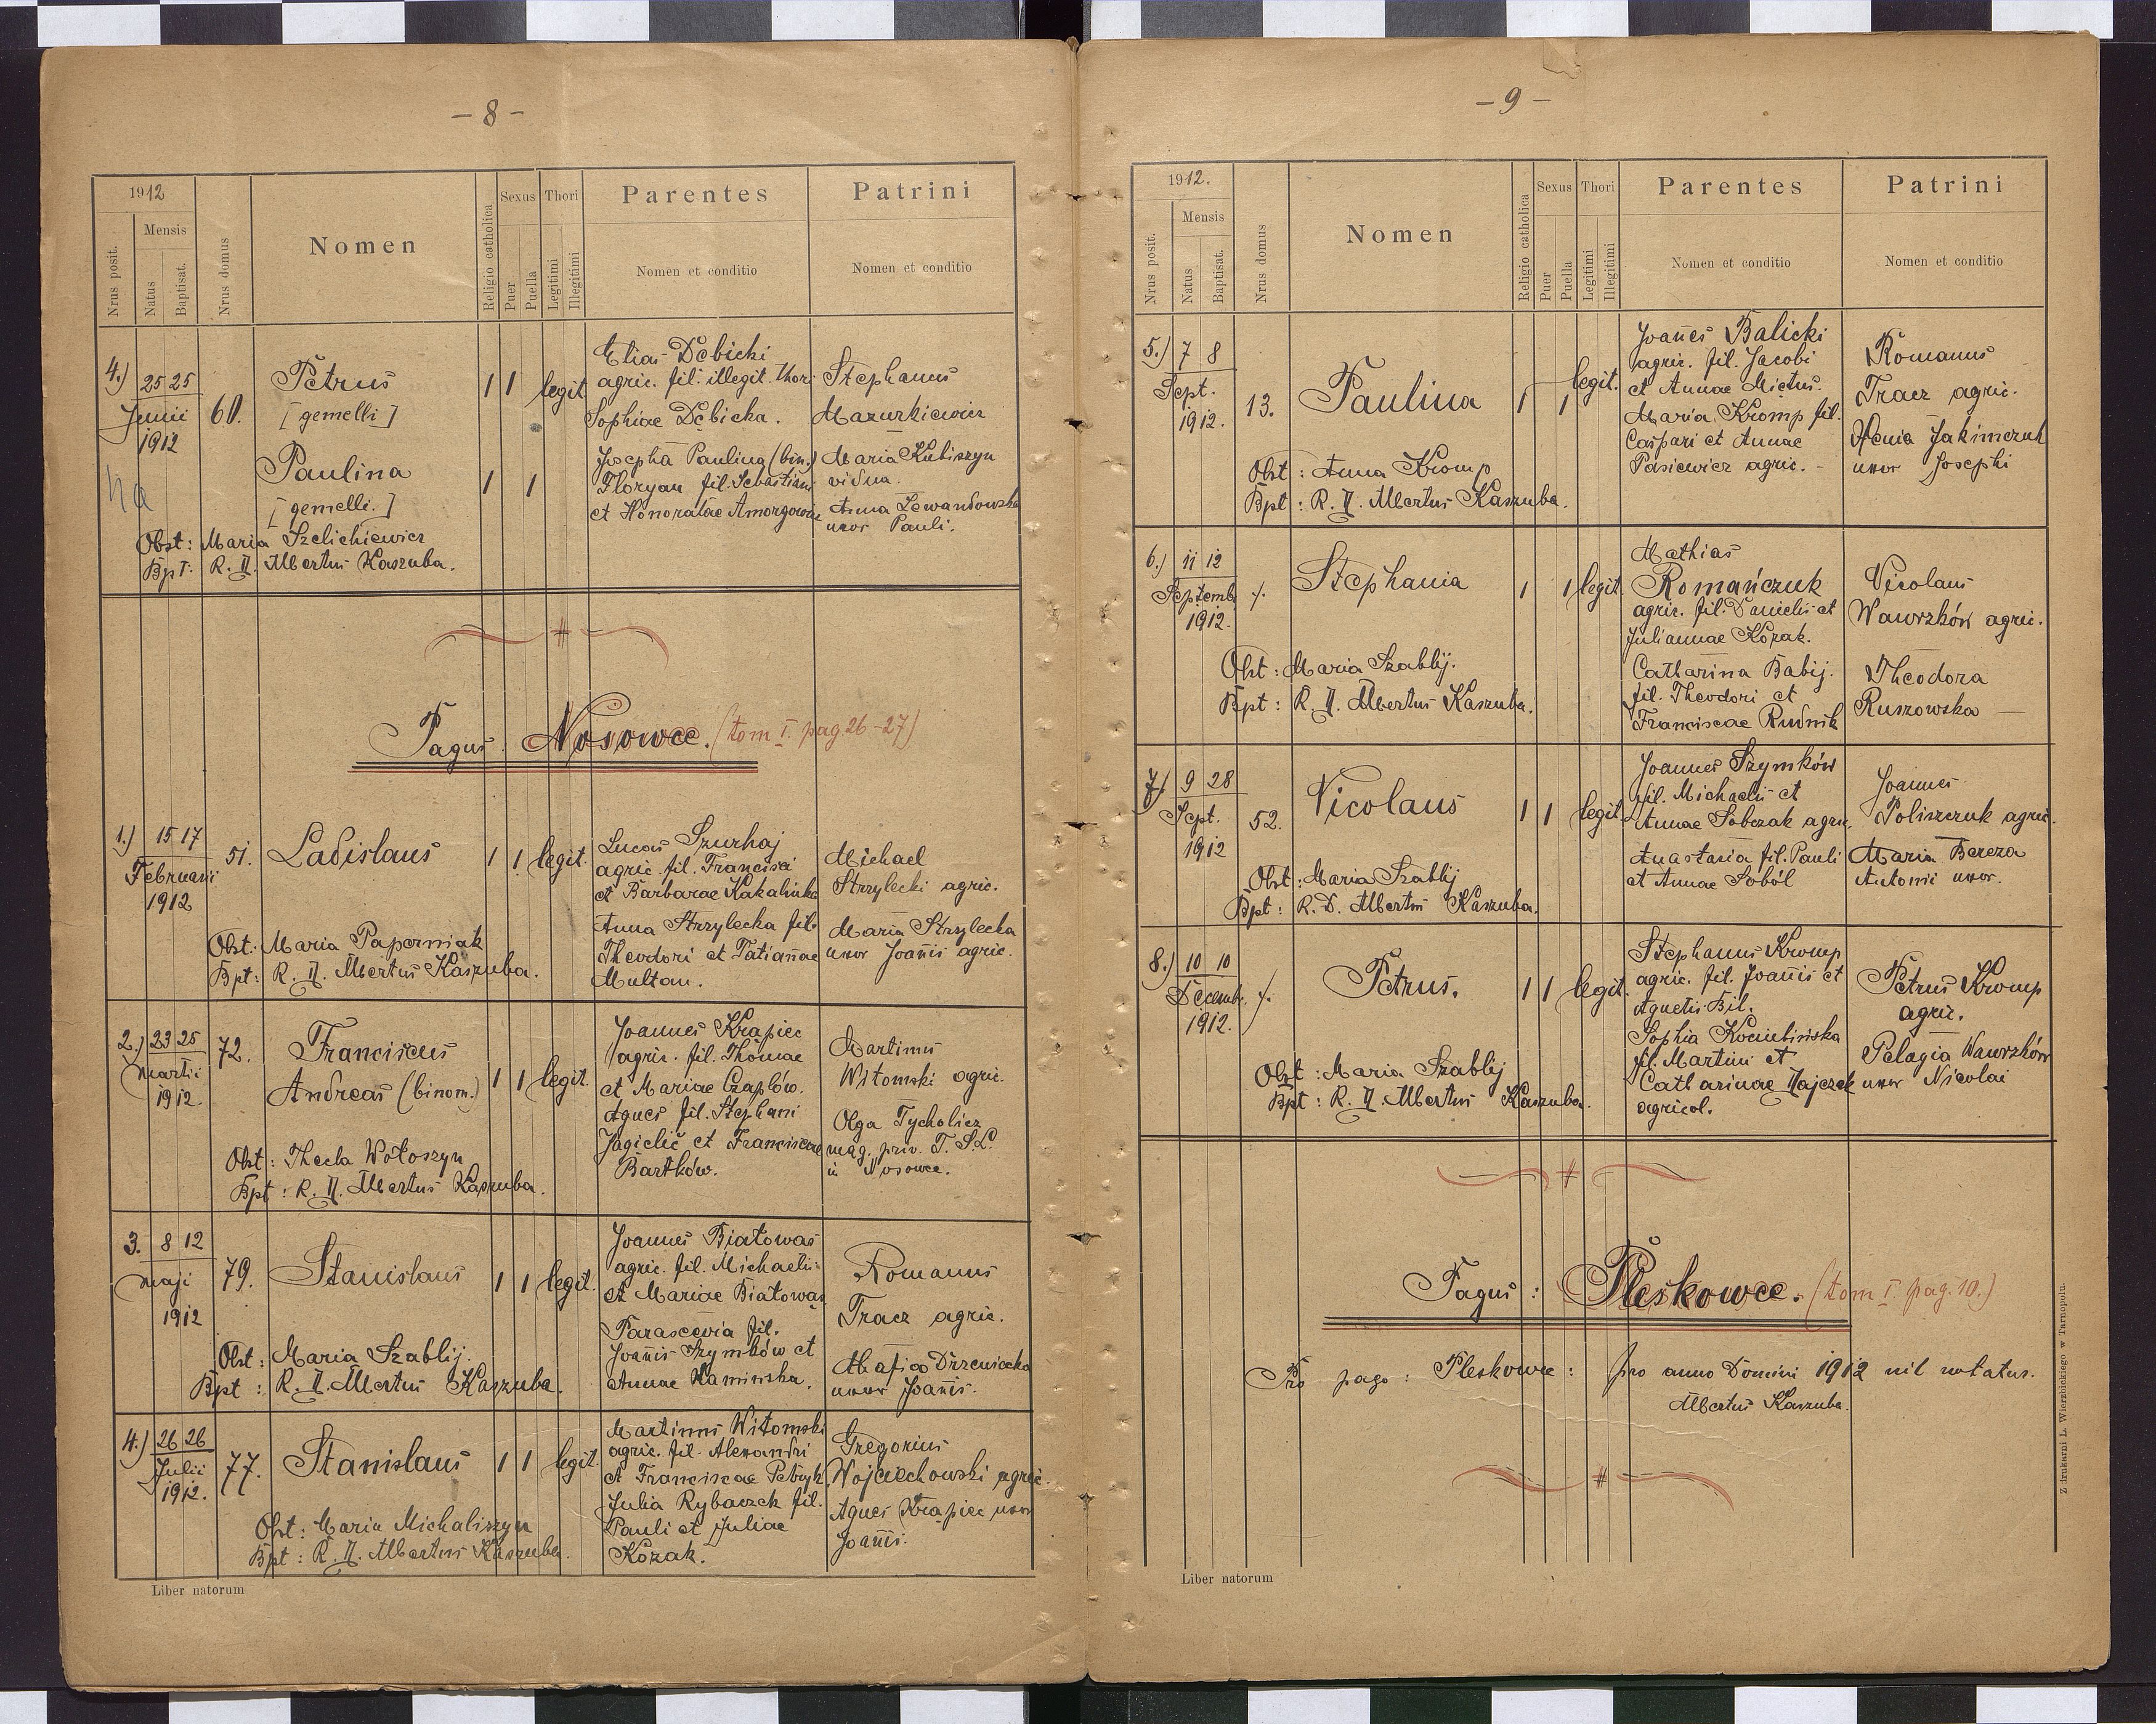 - 8 -
1912
Nrus posit.
Mensis
Natus
Baptisat.
Nrus domus
Nomen
Religio catholica
Sexus
Puer
Puella
Thori
Legitimi
Illegitimi
Parentes
Nomen et conditio
Patrini
Nomen et conditio
4.) 25 25
Junii
1912
60.
Petrus
[gemelli]
1 1 legit.
Paulina
[gemelli.]
1 1
Elias Dębicki
agric. fil. illegit. thori
Sophiae Dębicka.
Josepha Paulina (bin.)
Floryan fil. Sebastiani
et Honoratae Amorgowicz
Stephanus
Mazurkiewicz
Maria Kubiszyn
vidua.
Anna Lewandowska
uxor Pauli.
Obst: Maria Szelichiewicz
Bpt: R. D. Albertus Kaszuba.
Pagus Nosowce. (tom I. pag 26-27)
1.) 15 17
Februarii
1912
51.
Ladislaus
1 1 legit.
Lucas Szurhaj
agric. fil. Francisci
et Barbarae Kakalinka
Anna Strzylecka fil.
Theodori et Tatiannae
Multan.
Michael
Strzylecki agric.
Maria Strzylecka
uxor Joannis agric.
Obst: Maria Paperniak
Bpt: R. D. Albertus Kaszuba.
2.) 23 25
Martii
1912.
72.
Franciscus
Andreas (binom.)
1 1 legit.
Joannes Krąpiec
agric. fil. Thomae
et Mariae Czaplów.
Agnes fil. Stephani
Jagielić et Franciscae
Bartków.
Martinus
Witomski agric.
Olga Tycholicz
mag. priv. T. S. L.
in Nosowce.
Obst: Thecla Wołoszyn
Bpt: R. D. Albertus Kaszuba.
3. 8 12
Maji
1912
79.
Stanislaus
1 1 legit.
Joannes Białowąs
agric. fil. Michaelis
et Mariae Białowąs
Parascevia fil.
Joannis Szymków et
Annae Kaminska.
Romanus
Tracz agric.
Drzeniecka
uxor Joannis.
Obst: Maria Szablij.
Bpt: R. D. Albertus Kaszuba.
4.) 26 26
Julii
1912.
77.
Stanislaus
1 1 legit.
Martinus Witomski
agric. fil. Alexandri
et Franciscae Petryk
Julia Rybaczek fil.
Pauli et Juliae
Kozak.
Gregorius
Wojciechowski agric.
Agnes Krąpiec uxor
Joannis.
Obst: Maria Michaliszyn
Bpt: R. D. Albertus Kaszuba.
Liber natorum
- 9 -
1912.
Nrus posit.
Mensis
Natus
Baptisat.
Nrus domus
Nomen
Religio catholica
Sexus
Puer
Puella
Thori
Legitimi
Illegitimi
Parentes
Nomen et conditio
Patrini
Nomen et conditio
5.) 7 8
Sept.
1912.
13.
Paulina
1 1 legit.
Joannes Balicki
agric. fil. Jacobi
et Annae Mictus.
Maria Kromp fil.
Caspari et Annae
Pasiewicz agric.
Romanus
Tracz agric.
Xenia Jakimczuk
uxor Josephi
Obst: Anna Kromp
Bpt: R. D. Albertus Kaszuba.
6.) 11 12
Septemb.
1912.
Stephania
1 1 legit.
Mathias
Romańczuk
agric. fil. Danielis et
Juliannae Kozak.
Catharina Babij.
fil. Theodori et
Franciscae Rudnik
Nicolaus
Wawrzków agric.
Theodora
Ruszowska
Obst: Maria Szablij.
Bpt: R. D. Albertus Kaszuba.
7.) 9 28
Sept.
1912
52.
Nicolaus
1 1 legit.
Joannes Szymków
fil. Michaelis et
Annae Sobczak agric.
Anastasia fil. Pauli
et Annae Soból
Joannes
Poliszczuk agric.
Maria Bereza
Antonii uxor.
Obst: Maria Szablij
Bpt: R. D. Albertus Kaszuba.
8.) 10 10
Decemb.
1912.
Petrus.
1 1 legit.
Stephanus Kromp
agric. fil. Joannis et
Agnetis Bil.
Sophia
fil. Martini et
Catharinae Zajczek
agricol.
Petrus Kromp
agric.
Pelagia Wawrzków
uxor Nicolai
Obst: Maria Szablij
Bpt: R. D. Albertus Kaszuba.
Pagus: Pleskowce. (tom I. pag. 10.)
Pro pago: Pleskowce: pro anno Domini 1912 nil notatur.
Albertus Kaszuba.
Liber natorum
Z drukarni L. Wierzbickiego w Tarnopolu.